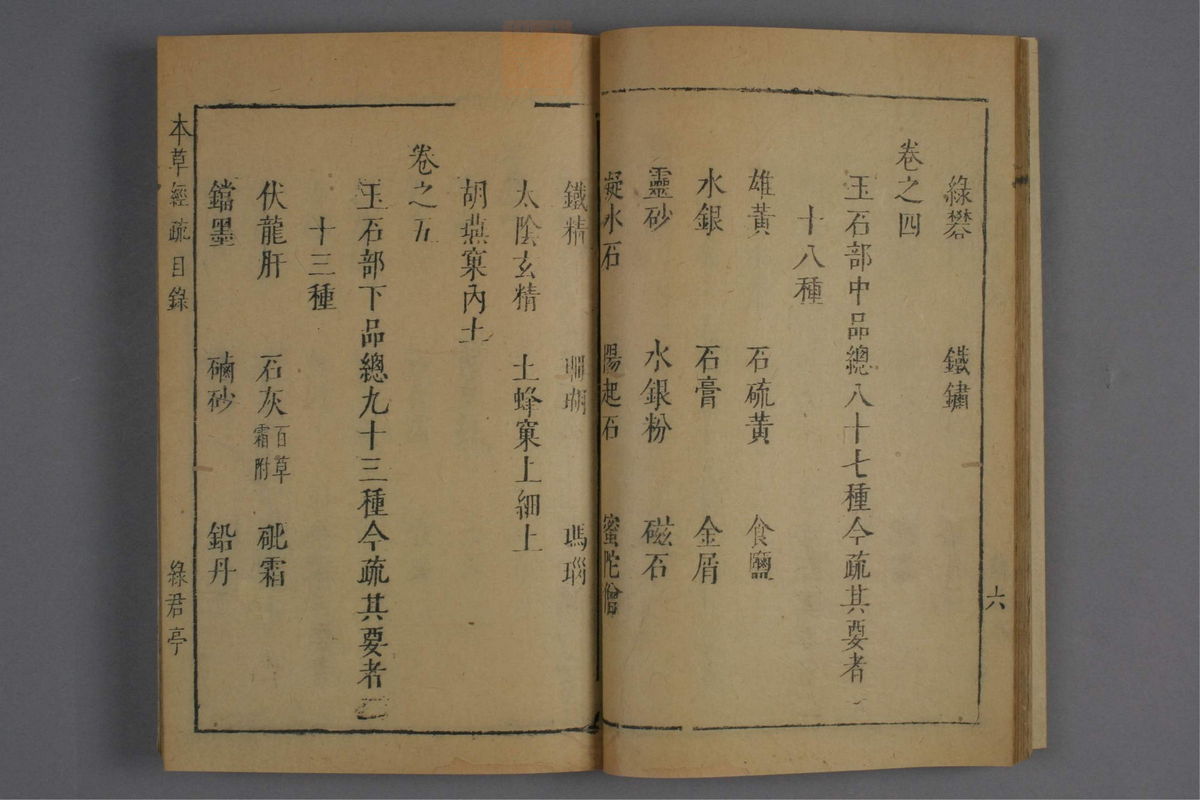 綠礬 鐵鏽
卷之四
玉石部中品總八十七種今疏其要者
十八種
雄黃 石硫黃 食鹽
水銀 石膏 金屑
靈砂 水銀粉 磁石
凝水石 陽起石 蜜陀僧
六
鐵精 珊瑚 瑪瑙
太陰玄精 土蜂窠上細土
胡燕窠內土
卷之五
玉石部下品總九十三種今疏其要者
十三種
伏龍肝 石灰百草霜附 砒霜
鐺墨 硇砂 鉛丹
本草經疏目錄 綠君亭